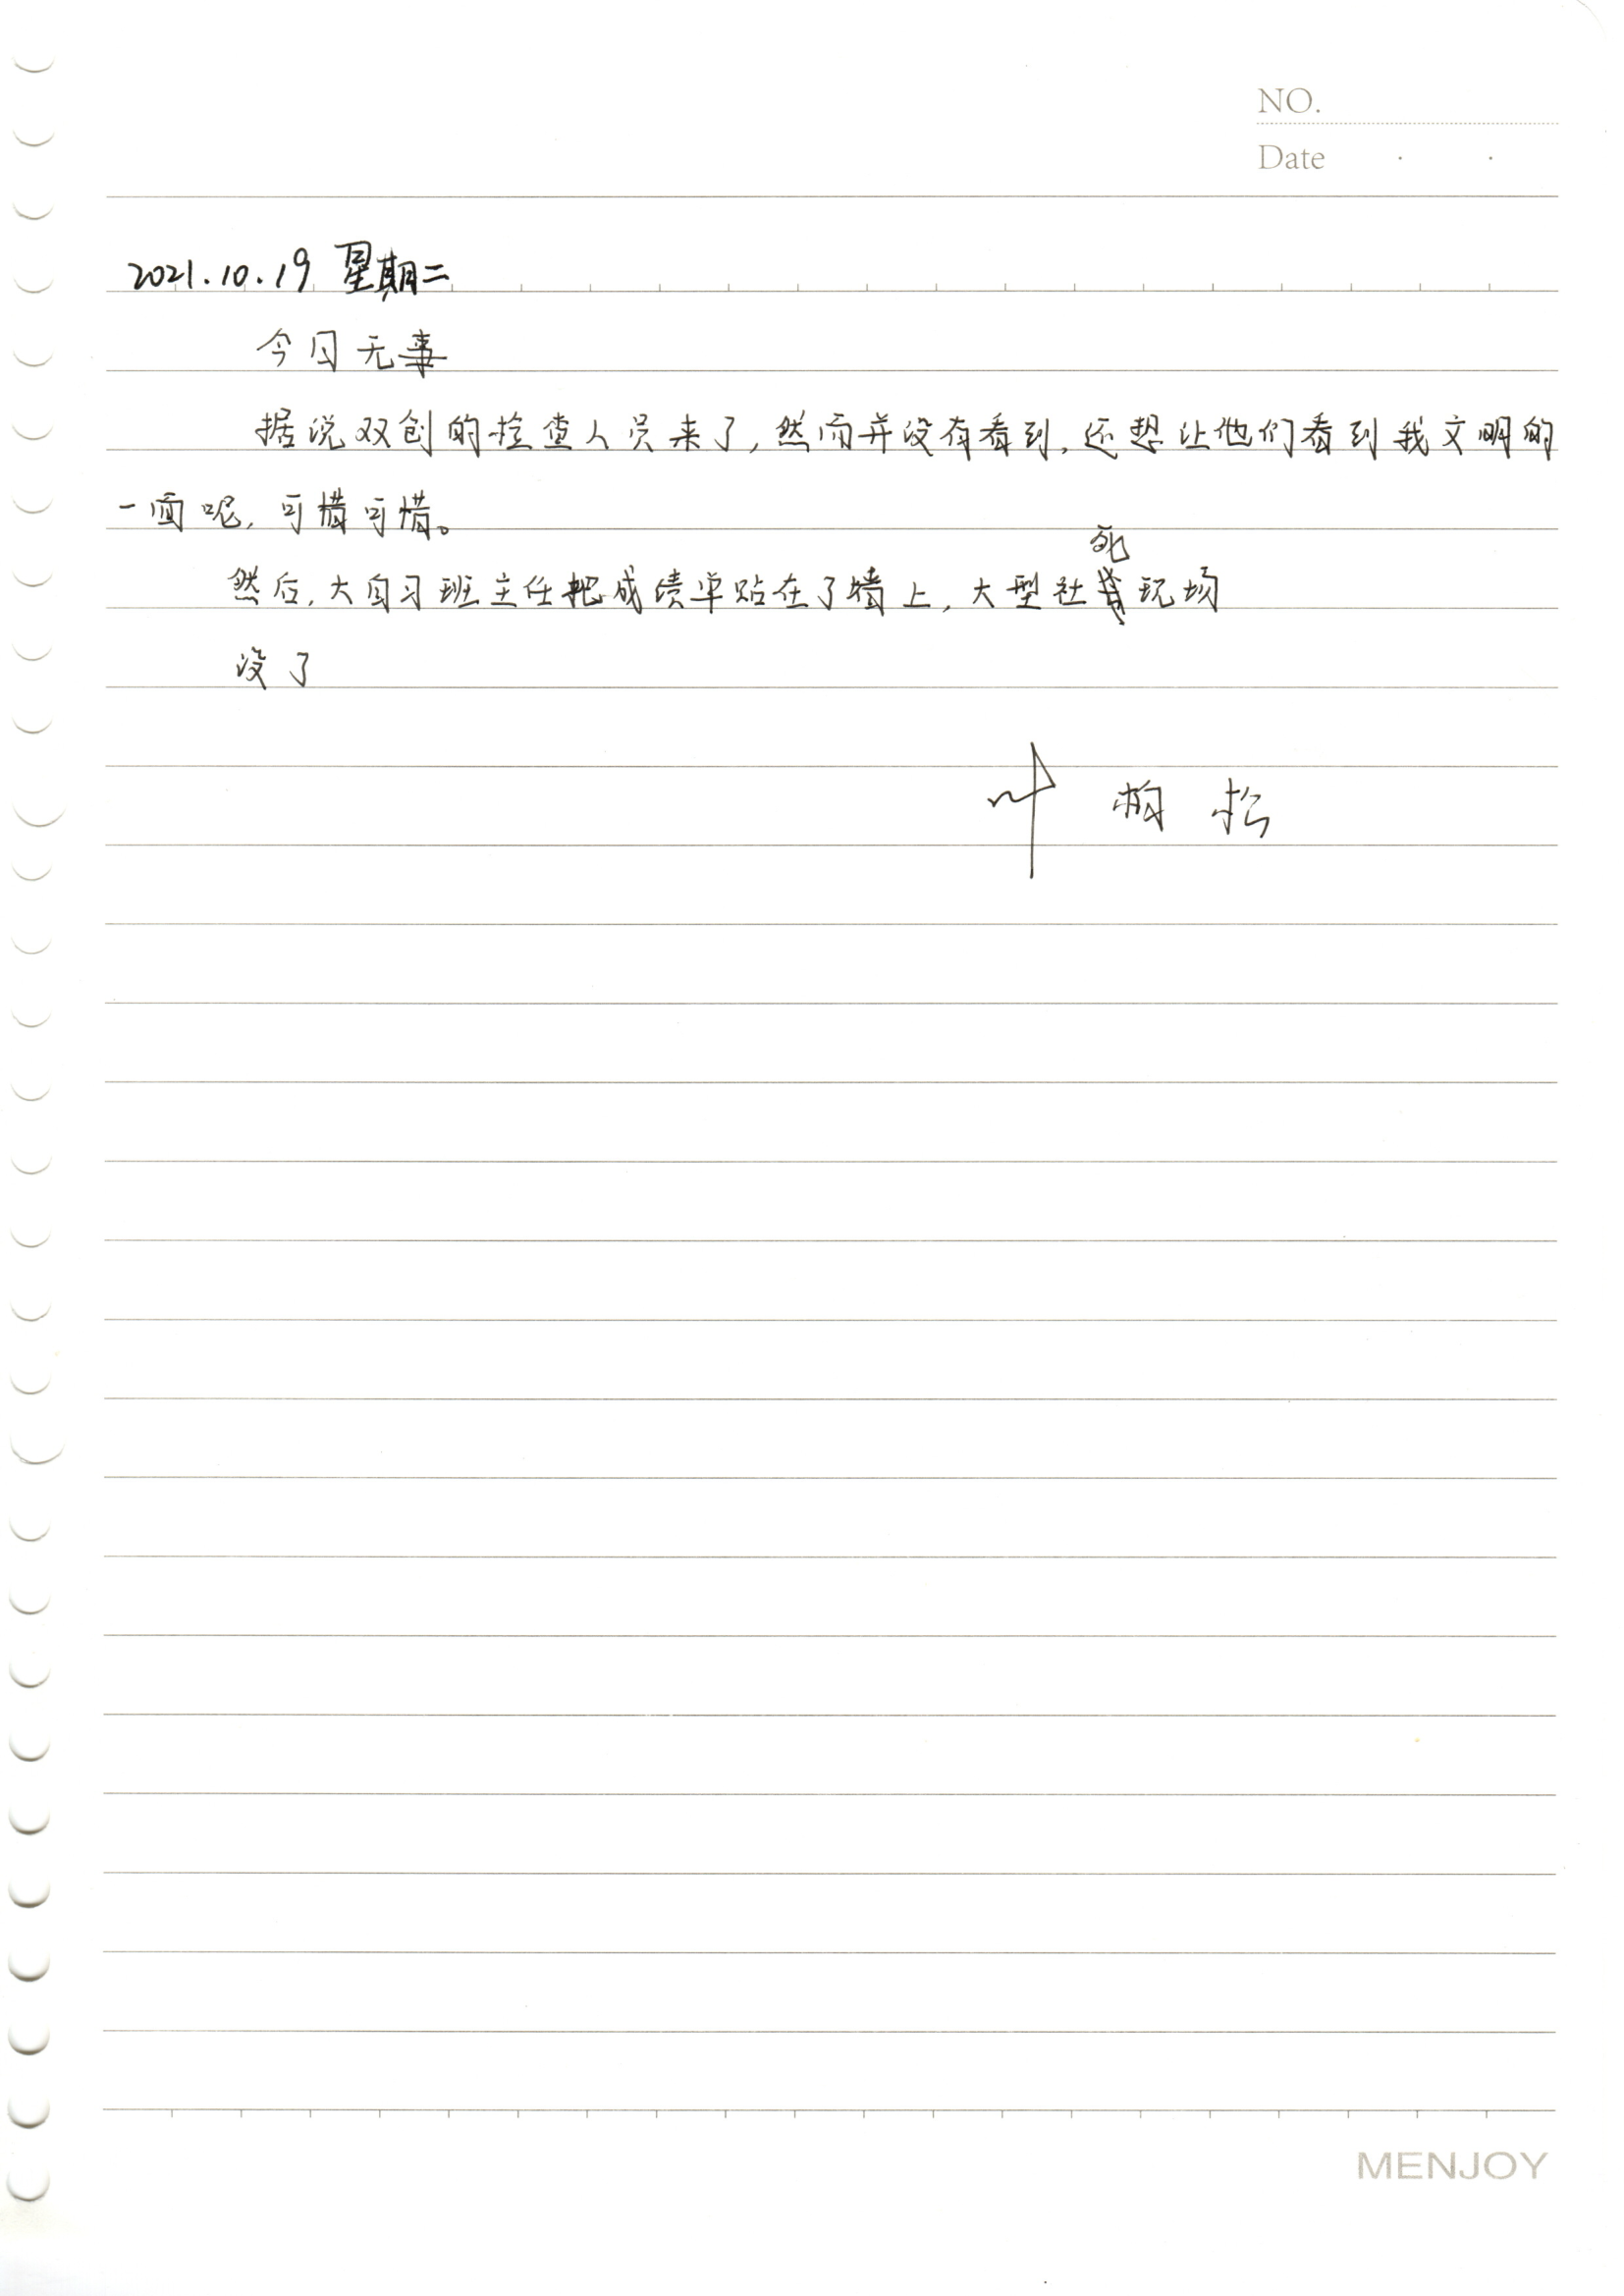 NO.
Date
2021.10.19 星期二
今日无事
据说双创的检查人员来了,然而并没有看到,还想让他们看到我文明的
一面呢,可惜可惜。
然后,大自习班主任把成绩单贴在了墙上,大型社死现场
没了
叶柏松
MENJOY